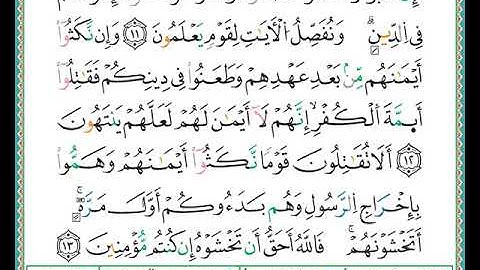 فِى ٱلدِّينِ ۗ وَنُفَصِّلُ ٱلْـَٔايَٰتِ لِقَوْمٍ يَعْلَمُونَ ١١ وَإِن نَّكَثُوٓا۟
أَيْمَٰنَهُم مِّنۢ بَعْدِ عَهْدِهِمْ وَطَعَنُوا۟ فِى دِينِكُمْ فَقَٰتِلُوٓا۟
أَئِمَّةَ ٱلْكُفْرِ ۙ إِنَّهُمْ لَآ أَيْمَٰنَ لَهُمْ لَعَلَّهُمْ يَنتَهُونَ
١٢ أَلَا تُقَٰتِلُونَ قَوْمًا نَّكَثُوٓا۟ أَيْمَٰنَهُمْ وَهَمُّوا۟
بِإِخْرَاجِ ٱلرَّسُولِ وَهُم بَدَءُوكُمْ أَوَّلَ مَرَّةٍ ۚ
أَتَخْشَوْنَهُمْ ۚ فَٱللَّهُ أَحَقُّ أَن تَخْشَوْهُ إِن كُنتُم مُّؤْمِنِينَ ١٣